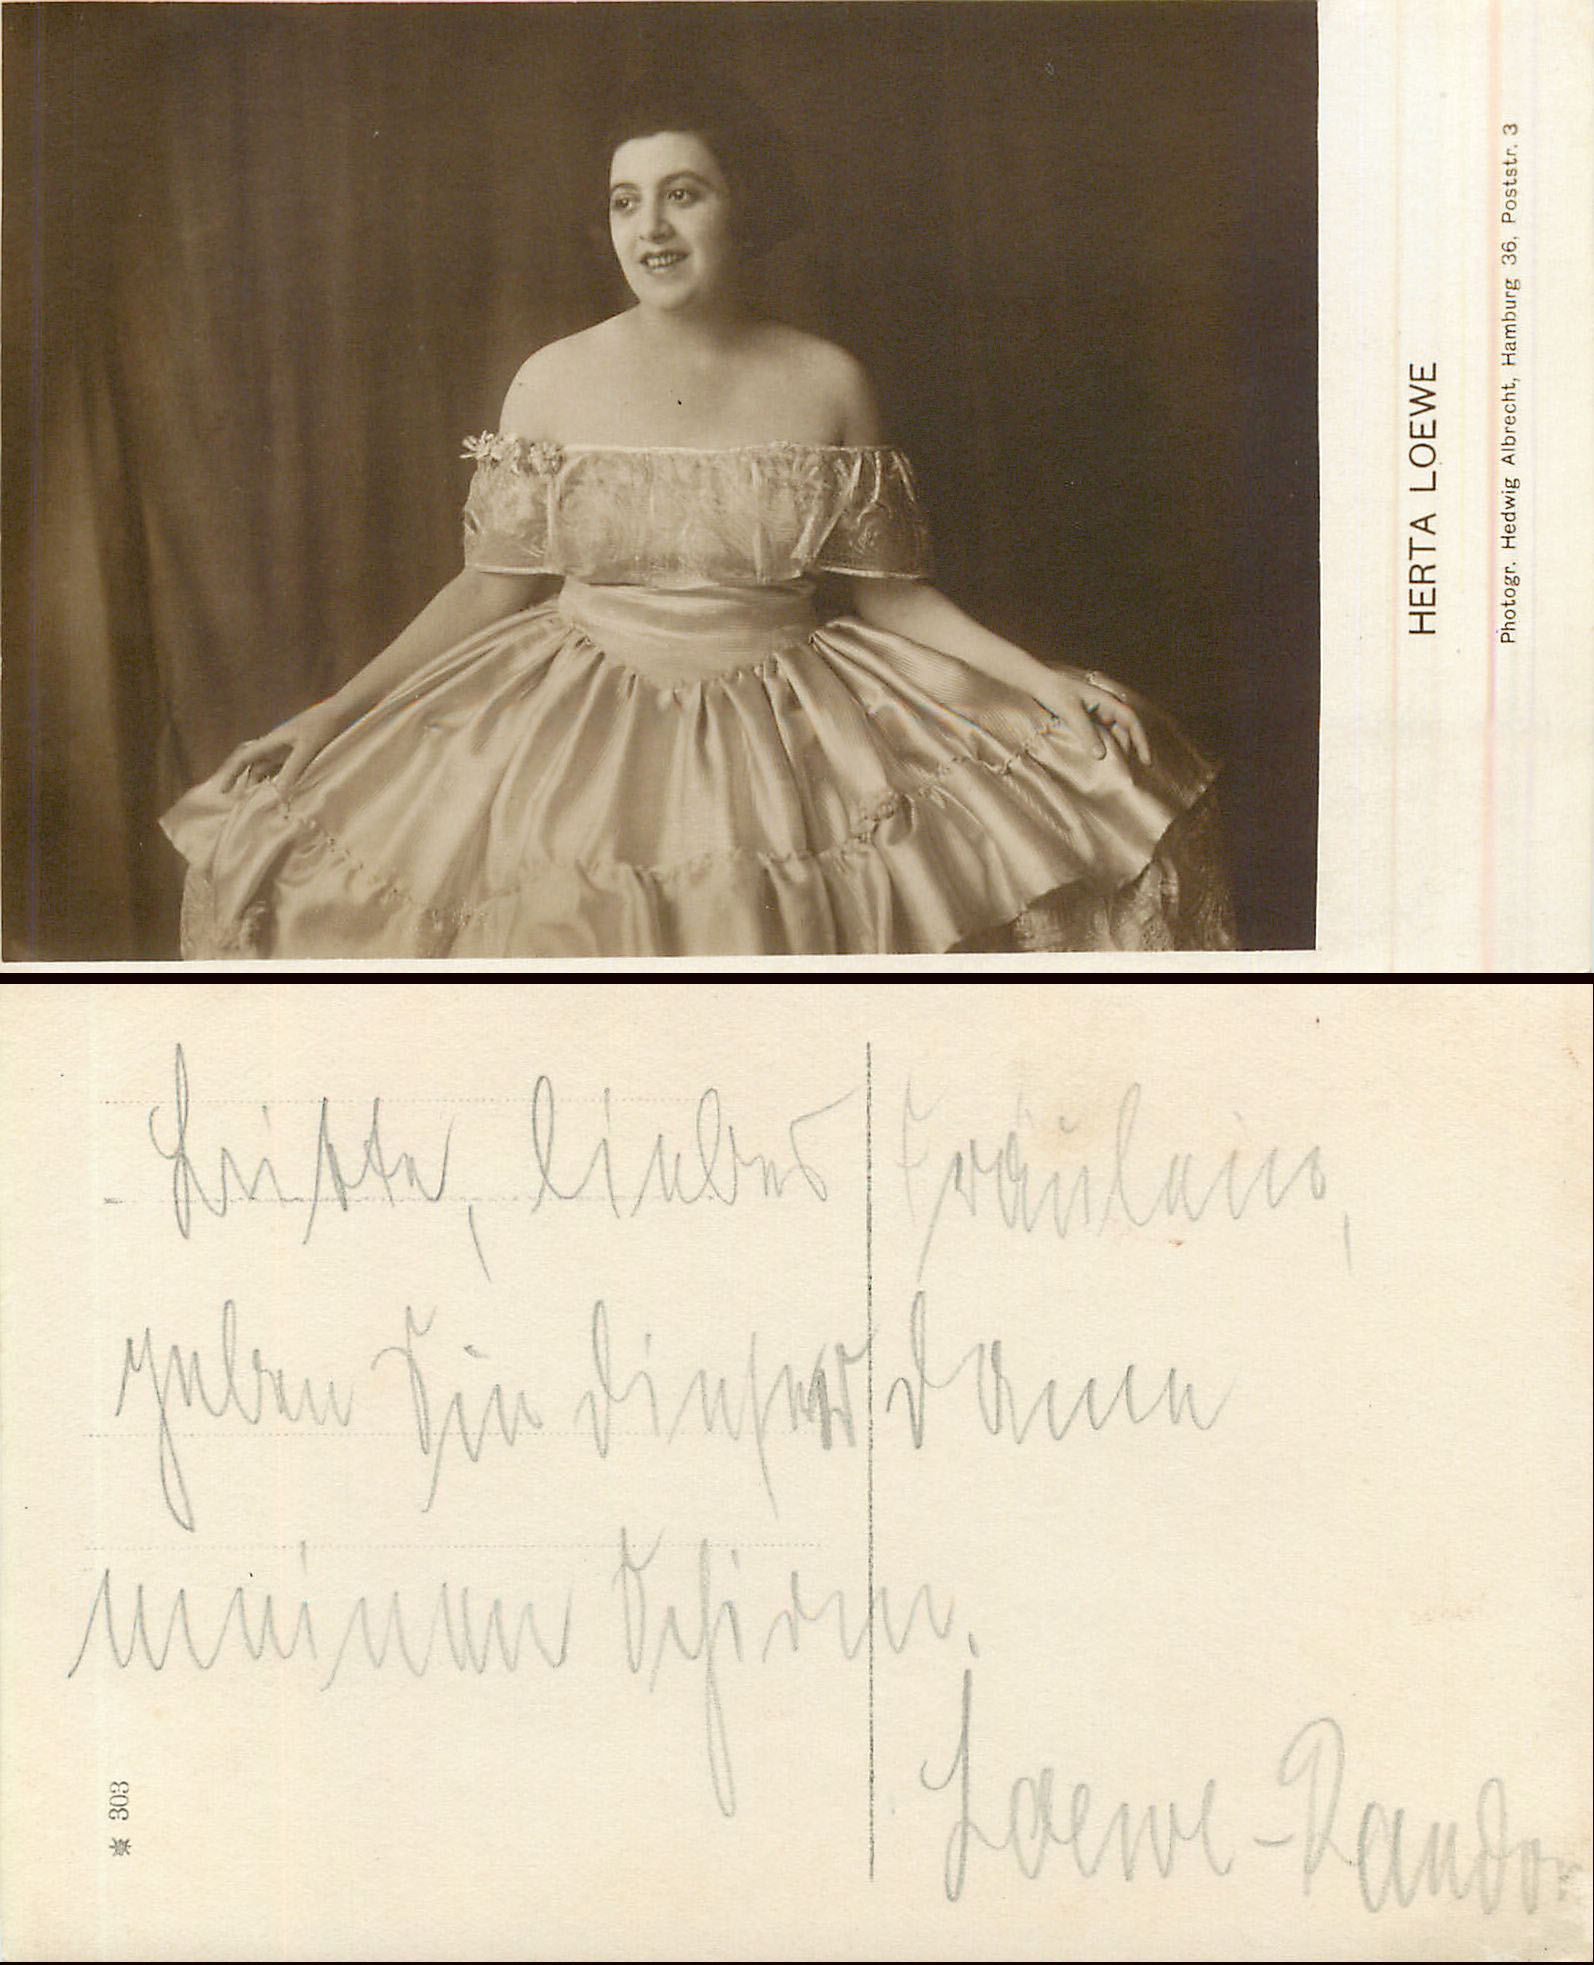 HERTA LOEWE
Photogr. Hedwig Albrecht, Hamburg 36, Poststr. 3
Bitte, liebes Fräulein,
geben Sie dieser Dame
meinen Schirm.
Loewe-Rando.
303